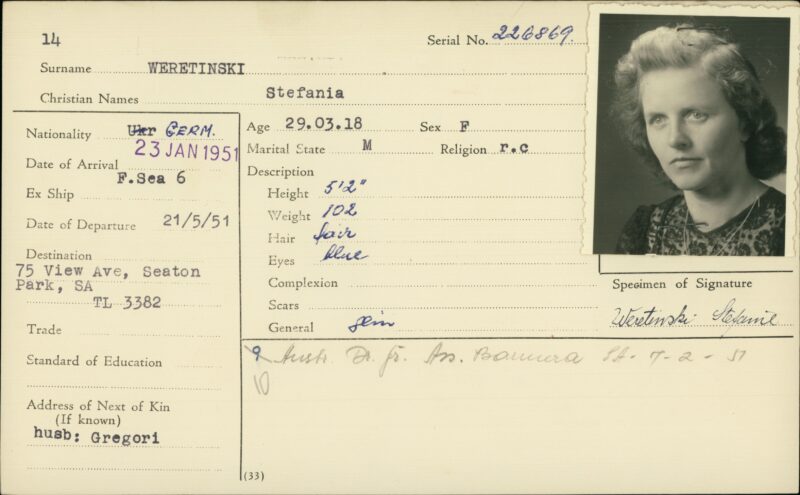 14
Serial No. 226869.
Surname WERETINSKI
Christian Names Stefania
Nationality Ukr GERM.
Date of Arrival 23 JAN 1951
Ex Ship F.Sea 6
Date of Departure 21/5/51
Destination
75 View Ave, Seaton
Park, SA
TL 3382
Trade
Standard of Education
Address of Next of Kin
(If known)
husb: Gregori
Age 29.03.18 Sex F
Marital State M Religion r.c
Description
Height 5'2"
Weight 102
Hair fair
Eyes blue
Complexion
Scars
General slim
Specimen of Signature
Weretinski Stefanie
Austr. 7-2-51
(33)